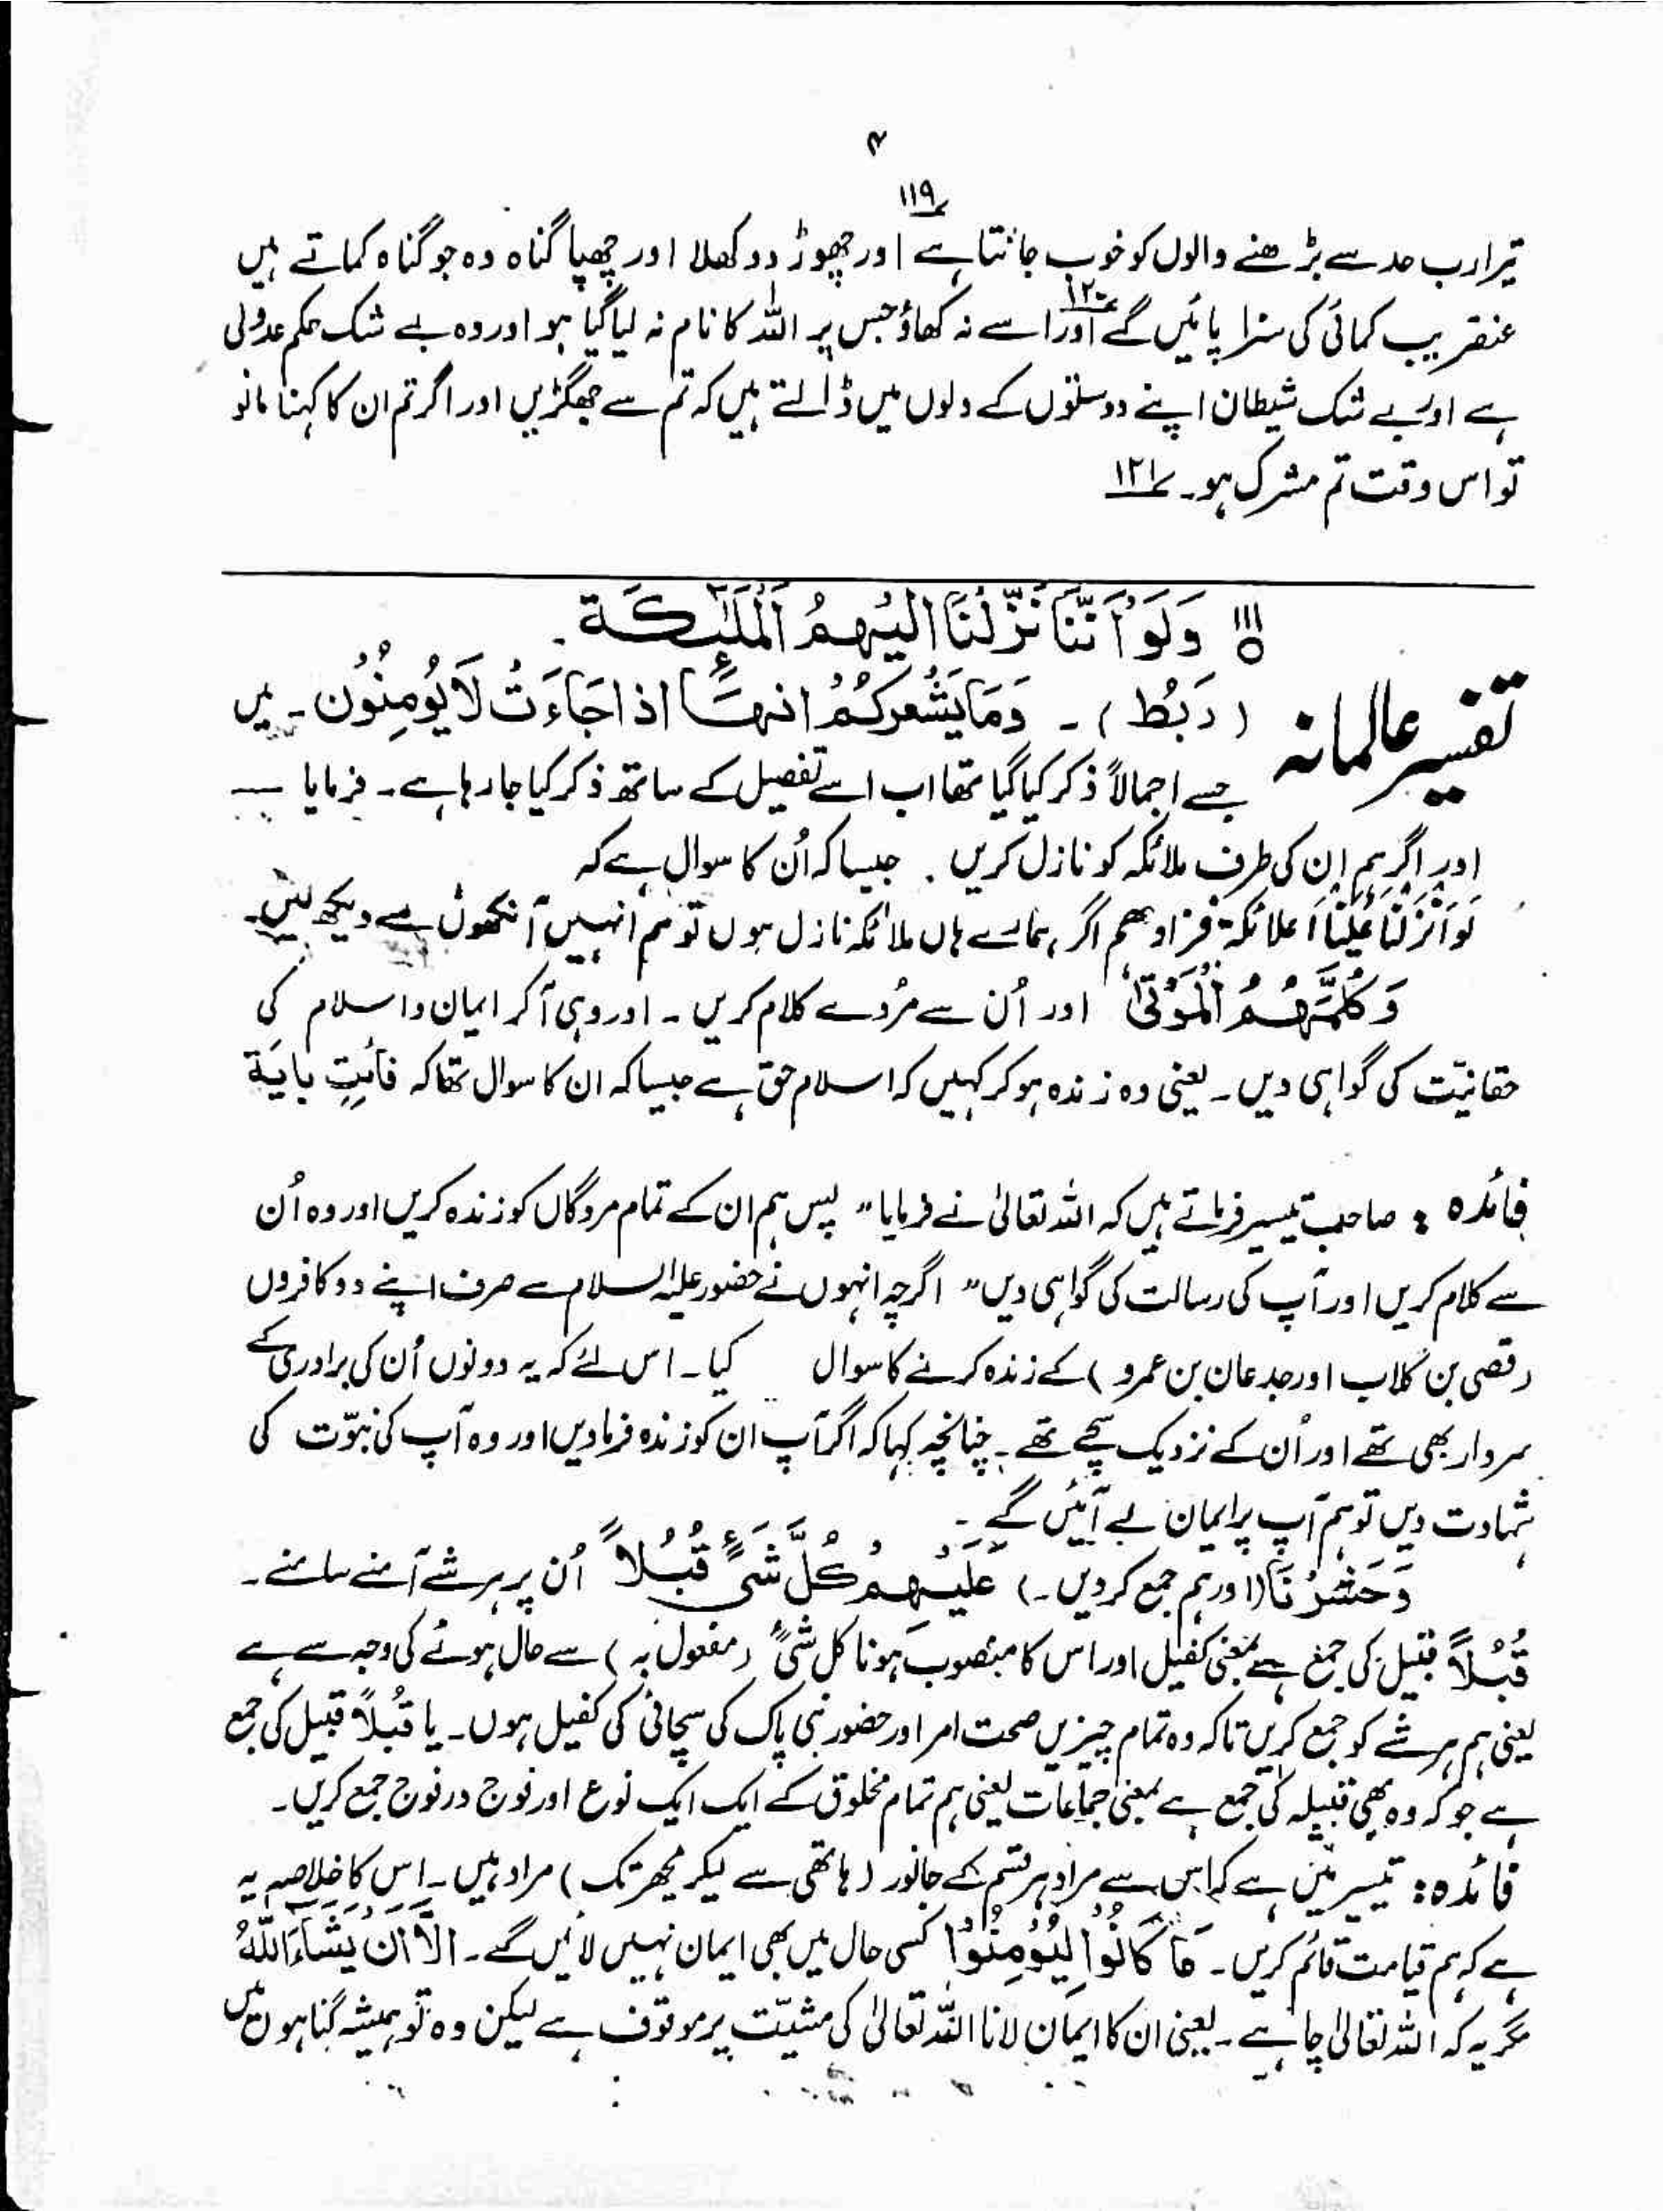 ۴
۱۱۹
تیرا رب حد سے بڑھنے والوں کو خوب جانتا ہے اور چھوڑ دو کھلا اور چھپا گناہ وہ جو گناہ کماتے ہیں
عنقریب کمائی کی سزا پائیں گے ۱۲۰ اور اسے نہ کھاؤ جس پر اللہ کا نام نہ لیا گیا ہو اور وہ بے شک حکم عدولی
ہے اور بے شک شیطان اپنے دوستوں کے دلوں میں ڈالتے ہیں کہ تم سے جھگڑیں اور اگر تم ان کا کہنا مانو
تو اس وقت تم مشرک ہو۔ ۱۲۱
۱۱۱ وَلَوْ اَنَّنَا نَزَّلْنَا اِلَیْهِمُ الْمَلٰٓئِكَةَ۔
تفسیر عالمانہ
(رَبُط)۔ وَمَا یُشْعِرُكُمْ انہَا اذا جَاءَتْ لَا یُومِنُوْن۔ میں
جسے اجمالاً ذکر کیا گیا تھا اب اسے تفصیل کے ساتھ ذکر کیا جا رہا ہے۔ فرمایا
اور اگر ہم ان کی طرف ملائکہ کو نازل کریں۔ جیسا کہ اُن کا سوال ہے کہ
لَوْ اَنْزَلْنَا عَلَیْنَا علائکۃ فنراوھم اگر ہمارے ہاں ملائکہ نازل ہوں تو ہم انہیں آنکھوں سے دیکھ لیں۔
وَكَلَّمَهُمُ الْمَوْتٰی اور اُن سے مُردے کلام کریں۔ اور وہی آ کر ایمان و اسلام کی
حقانیّت کی گواہی دیں۔ یعنی وہ زندہ ہو کر کہیں کہ اسلام حق ہے جیسا کہ ان کا سوال تھا کہ فَأتِ بِاٰیَة
فائدہ : صاحب تیسیر فرماتے ہیں کہ اللہ تعالیٰ نے فرمایا "پس ہم ان کے تمام مردگاں کو زندہ کریں اور وہ اُن
سے کلام کریں اور آپ کی رسالت کی گواہی دیں" اگرچہ انہوں نے حضور علیہ السلام سے صرف اپنے دو کافروں
(قصی بن کلاب اور جدعان بن عمرو) کے زندہ کرنے کا سوال کیا۔ اس لئے کہ یہ دونوں اُن کی برادری کے
سردار بھی تھے اور اُن کے نزدیک سچے تھے۔ چنانچہ کہا کہ اگر آپ ان کو زندہ فرما دیں اور وہ آپ کی نبوّت کی
شہادت دیں تو ہم آپ پر ایمان لے آئیں گے۔
وَحَشَرْنَا (اور ہم جمع کر دیں۔) عَلَیْهِمْ كُلَّ شَیْءٍ قُبُلاً اُن پر ہر شے آمنے سامنے۔
قُبُلاً قبیل کی جمع ہے بمعنی کفیل اور اس کا منصوب ہونا کل شئٍ (مفعول بہ) سے حال ہونے کی وجہ سے ہے
یعنی ہم ہر شے کو جمع کریں تاکہ وہ تمام چیزیں صحت امر اور حضور نبی پاک کی سچائی کی کفیل ہوں۔ یا قُبُلاً قبیل کی جمع
ہے جو کہ وہ بھی قبیلہ کی جمع ہے بمعنی جماعات یعنی ہم تمام مخلوق کے ایک ایک نوع اور فوج در فوج جمع کریں۔
فائدہ : تیسیر میں ہے کہ اس سے مراد ہر قسم کے جانور (ہاتھی سے لیکر مچھر تک) مراد ہیں۔ اس کا خلاصہ یہ
ہے کہ ہم قیامت قائم کریں۔ مَا كَانُوْا لِیُؤْمِنُوْا کسی حال میں بھی ایمان نہیں لائیں گے۔ الَّا اَنْ یَشَاءَ اللّٰهُ
مگر یہ کہ اللہ تعالیٰ چاہے۔ یعنی ان کا ایمان لانا اللہ تعالیٰ کی مشیّت پر موقوف ہے لیکن وہ تو ہمیشہ گناہوں میں